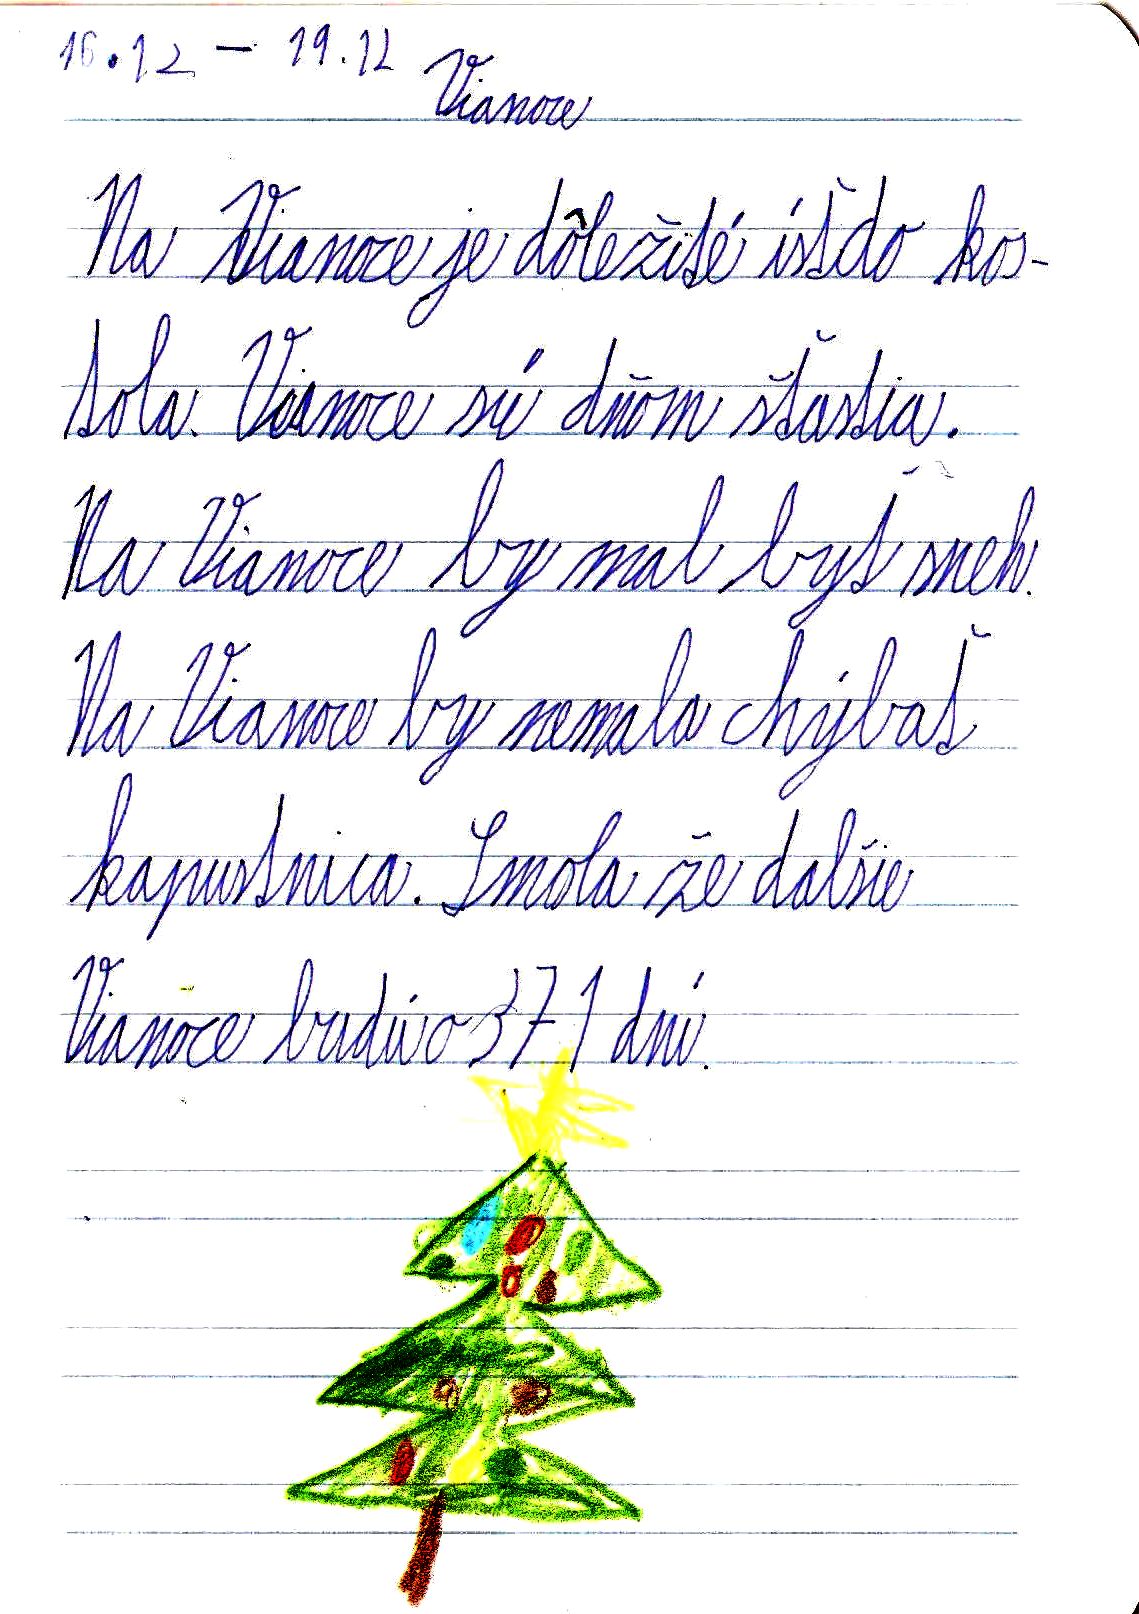 16.12 – 19.12
Vianoce
Na Vianoce je dôležité ísť do kos-
tola. Vianoce sú dňom šťastia.
Na Vianoce by mal byť sneh.
Na Vianoce by nemala chýbať
kapustnica. Smola že dalšie
Vianoce budú o 371 dní.